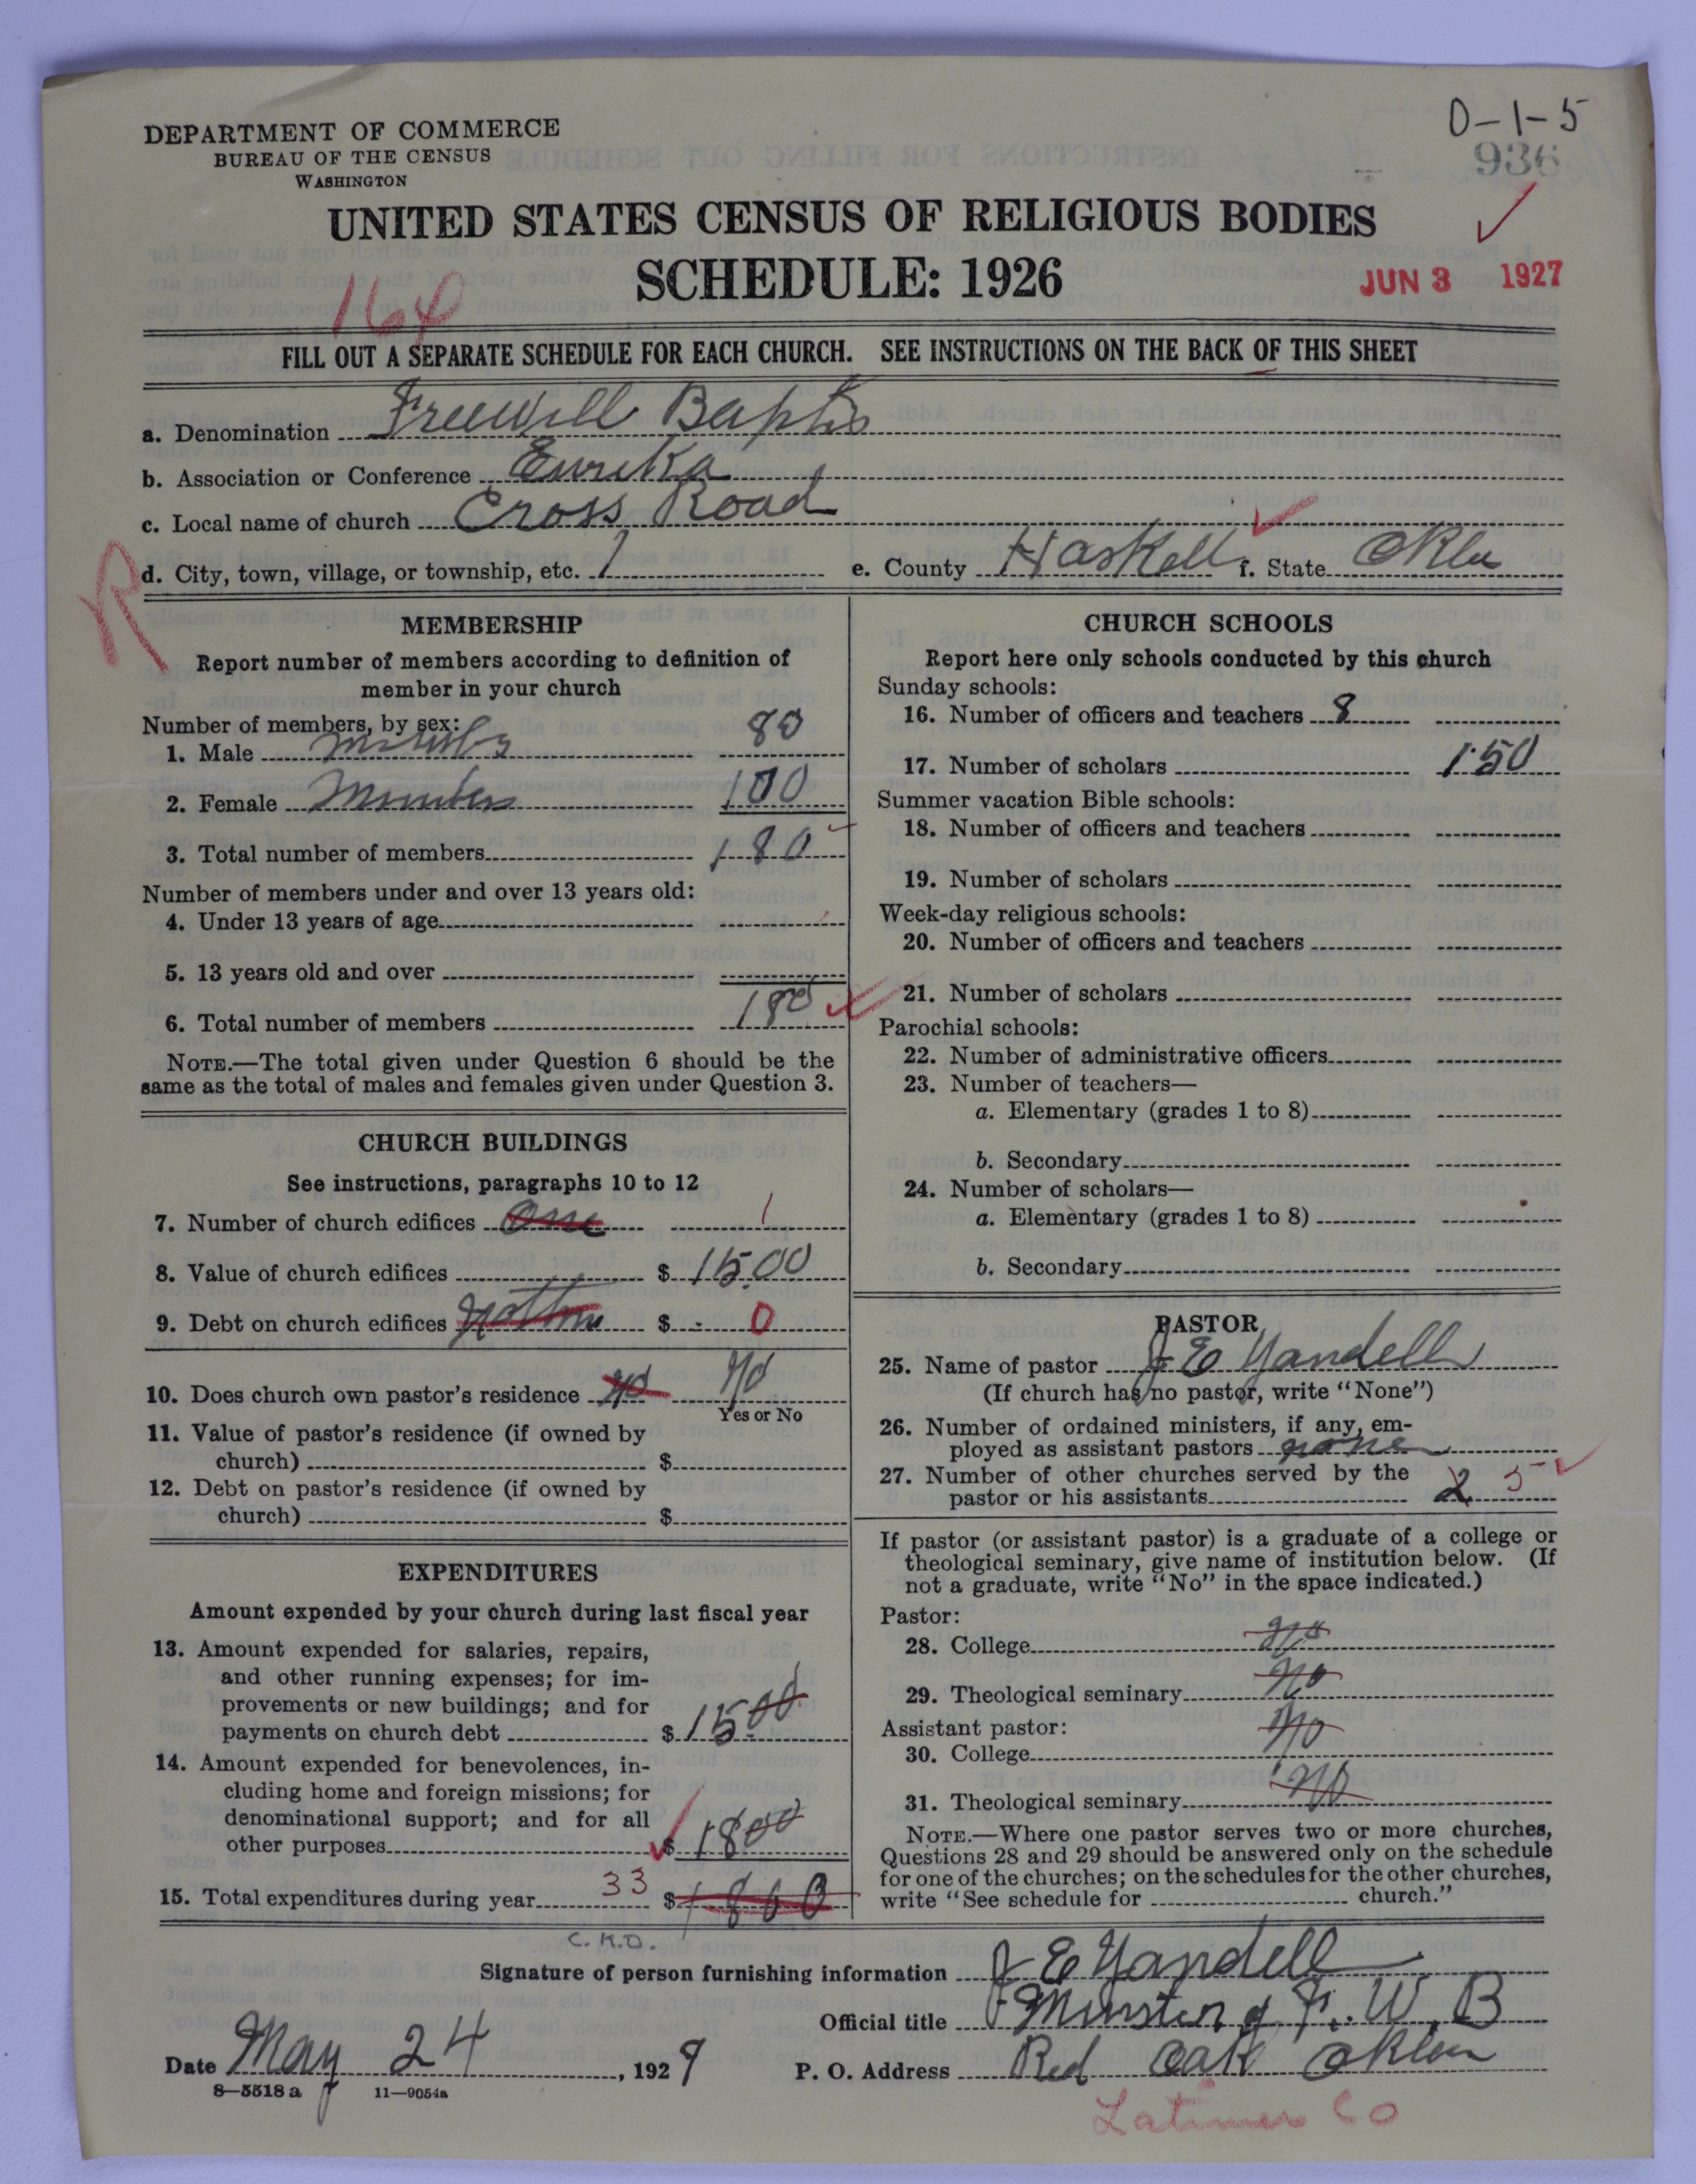 0-1-5
DEPARTMENT OF COMMERCE
BUREAU OF THE CENSUS
WASHINGTON
936
UNITED STATES CENSUS OF RELIGIOUS BODIES
SCHEDULE: 1926
164
JUN 3 1927
FILL OUT A SEPARATE SCHEDULE FOR EACH CHURCH. SEE INSTRUCTIONS ON THE BACK OF THIS SHEET
a. Denomination Freewill Baptis
b. Association or Conference Eureka
c. Local name of church Cross Road
R
d. City, town, village, or township, etc. 1 e. County Haskell f. State Okla
MEMBERSHIP
Report number of members according to definition of
member in your church
Number of members, by sex:
1. Male 80
2. Female Members 100
3. Total number of members 180
Number of members under and over 13 years old:
4. Under 13 years of age
5. 13 years old and over
6. Total number of members 180
NOTE.—The total given under Question 6 should be the
same as the total of males and females given under Question 3.
CHURCH BUILDINGS
See instructions, paragraphs 10 to 12
7. Number of church edifices One 1
8. Value of church edifices $ 1500
9. Debt on church edifices $ 0
10. Does church own pastor's residence No No
Yes or No
11. Value of pastor's residence (if owned by
church) $
12. Debt on pastor's residence (if owned by
church) $
EXPENDITURES
Amount expended by your church during last fiscal year
13. Amount expended for salaries, repairs,
and other running expenses; for im-
provements or new buildings; and for
payments on church debt $ 1500
14. Amount expended for benevolences, in-
cluding home and foreign missions; for
denominational support; and for all
other purposes $ 1800
15. Total expenditures during year 33 $
C.K.D.
CHURCH SCHOOLS
Report here only schools conducted by this church
Sunday schools:
16. Number of officers and teachers 8
17. Number of scholars 150
Summer vacation Bible schools:
18. Number of officers and teachers
19. Number of scholars
Week-day religious schools:
20. Number of officers and teachers
21. Number of scholars
Parochial schools:
22. Number of administrative officers
23. Number of teachers—
a. Elementary (grades 1 to 8)
b. Secondary
24. Number of scholars—
a. Elementary (grades 1 to 8)
b. Secondary
PASTOR
25. Name of pastor J E Yandell
(If church has no pastor, write "None")
26. Number of ordained ministers, if any, em-
ployed as assistant pastors none
27. Number of other churches served by the
pastor or his assistants 2 5
If pastor (or assistant pastor) is a graduate of a college or
theological seminary, give name of institution below. (If
not a graduate, write "No" in the space indicated.)
Pastor:
28. College No
29. Theological seminary No
Assistant pastor:
30. College No
31. Theological seminary No
NOTE.—Where one pastor serves two or more churches,
Questions 28 and 29 should be answered only on the schedule
for one of the churches; on the schedules for the other churches,
write "See schedule for church."
Signature of person furnishing information J E Yandell
Official title Minster of F. W. B
Date May 24, 1927 P. O. Address Red Oak Okla
8—5518 a 11—9054a
Latimer Co